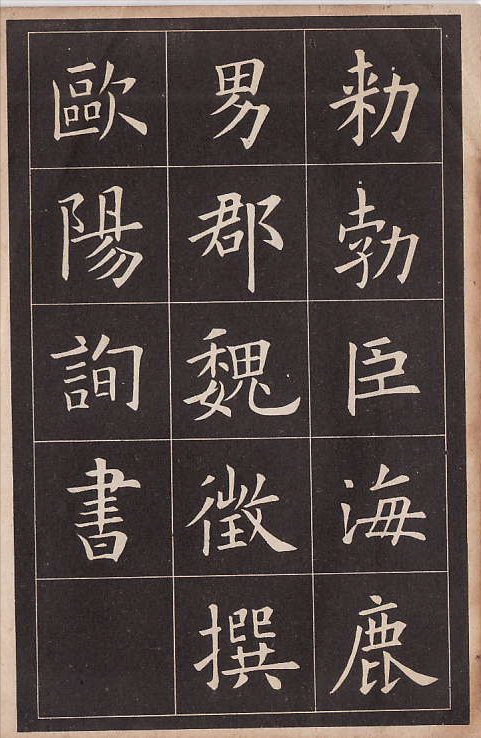 勑勃臣海鹿
男郡魏徵撰
歐陽詢書